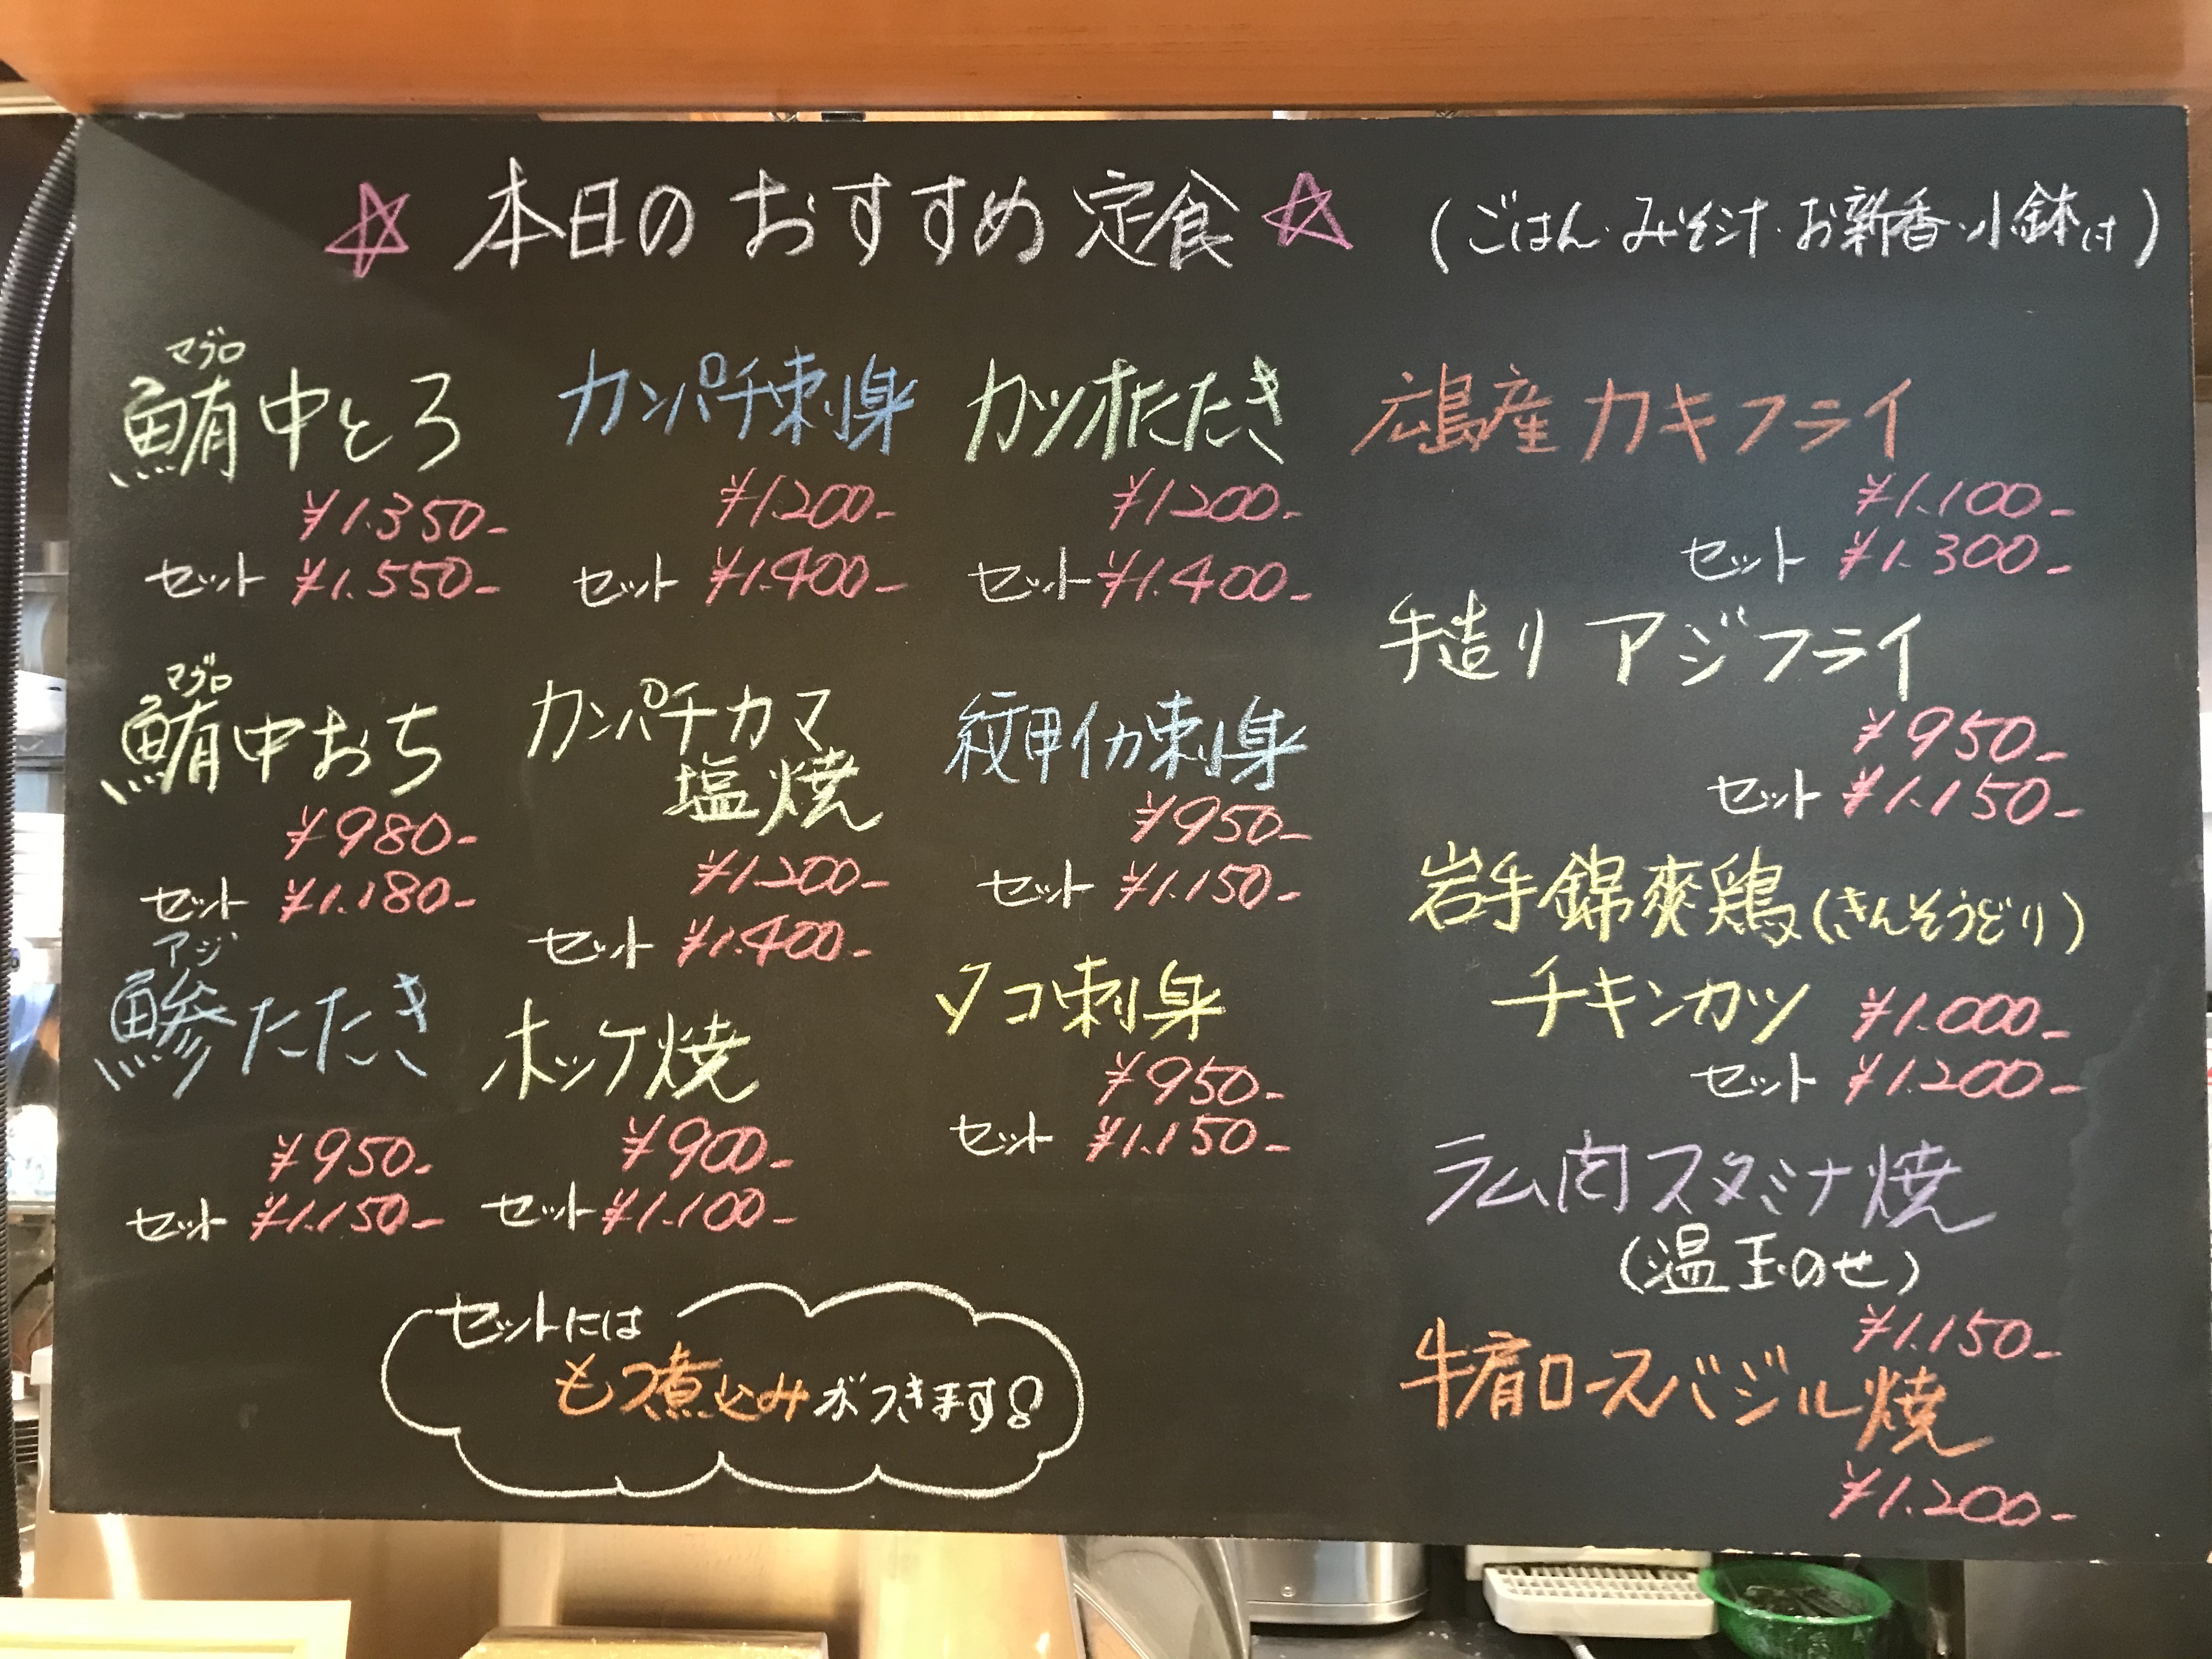 ☆ 本日の おすすめ 定食 ☆ (ごはん・みそ汁・お新香・小鉢付)
マグロ
鮪中とろ
¥1.350-
セット ¥1.550-
マグロ
鮪中おち
¥980-
セット ¥1.180-
アジ
鯵たたき
¥950-
セット ¥1.150-
カンパチ刺身
¥1.200-
セット ¥1.400-
カンパチカマ
塩焼
¥1200-
セット ¥1.400-
ホッケ焼
¥900-
セット ¥1.100-
カツオたたき
¥1200-
セット ¥1.400-
紋甲イカ刺身
¥950-
セット ¥1.150-
タコ刺身
¥950-
セット ¥1.150-
広島産カキフライ
¥1.100-
セット ¥1.300-
手造り アジフライ
¥950-
セット ¥1.150-
岩手錦爽鶏(きんそうどり)
チキンカツ ¥1.000-
セット ¥1.200-
ラム肉スタミナ焼
(温玉のせ)
¥1.150-
牛肩ロースバジル焼
¥1.200-
セットには
もつ煮込みがつきます!